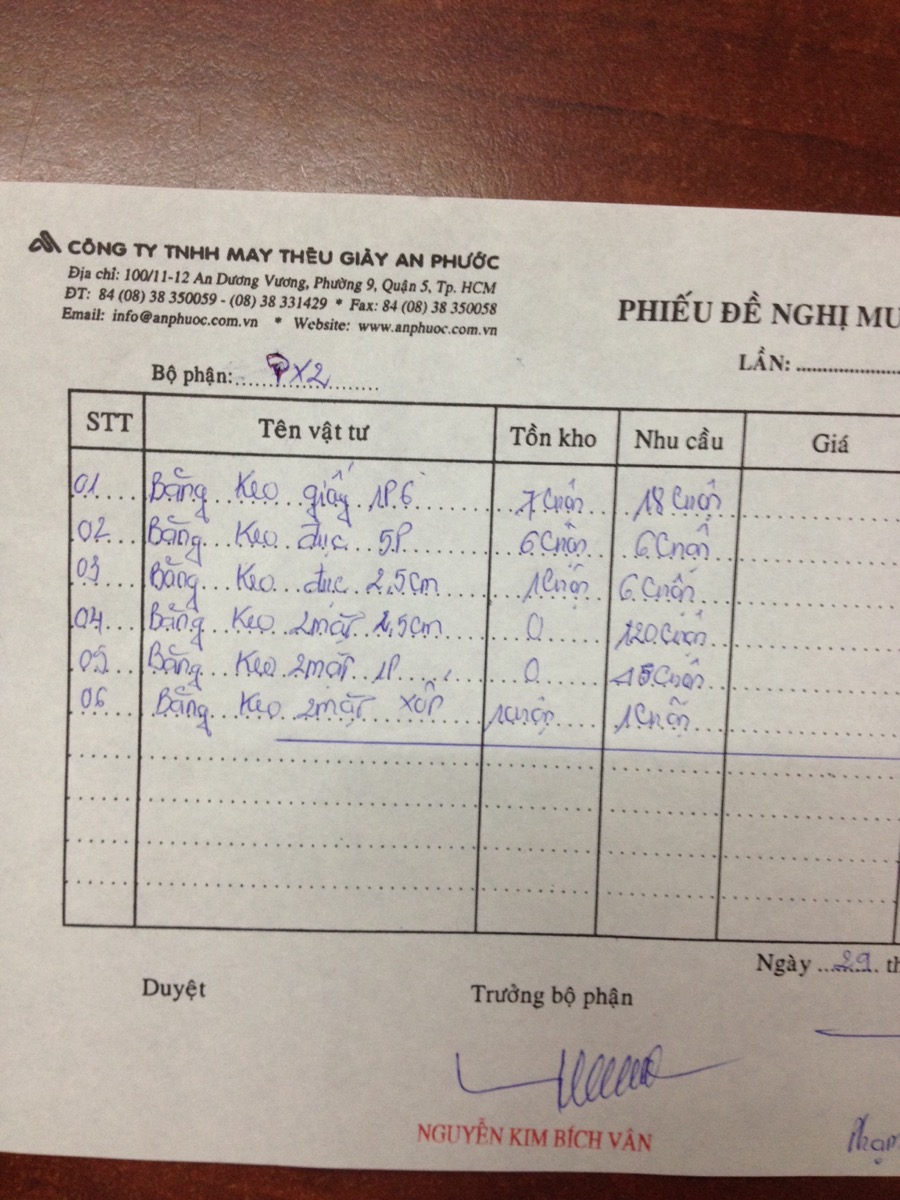 CÔNG TY TNHH MAY THÊU GIÀY AN PHƯỚC
Địa chỉ: 100/11-12 An Dương Vương, Phường 9, Quận 5, Tp. HCM
ĐT: 84 (08) 38 350059 - (08) 38 331429 * Fax: 84 (08) 38 350058
Email: info@anphuoc.com.vn * Website: www.anphuoc.com.vn
PHIẾU ĐỀ NGHỊ MU
LẦN:
Bộ phận: PX2
STT Tên vật tư Tồn kho Nhu cầu Giá
01 Băng Keo giấy 1P6 7 Cuộn 18 Cuộn
02 Băng Keo đục 5P 6 Cuộn 6 Cuộn
03 Băng Keo đục 2,5cm 1 Cuộn 6 Cuộn
04 Băng Keo 2 mặt 2,5cm 0 120 Cuộn
05 Băng Keo 2 mặt 1P 0 45 Cuộn
06 Băng Keo 2 mặt xốp 1 Cuộn 1 Cuộn
Ngày 29 th
Duyệt Trưởng bộ phận
NGUYỄN KIM BÍCH VÂN
Phạm